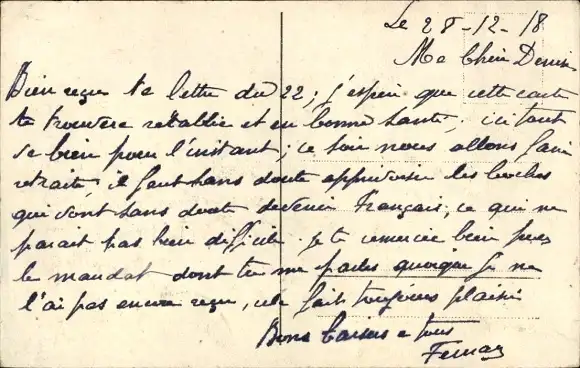 Le 28-12-18
Ma Chère Denise
Bien reçu ta lettre du 22; j'espère que cette carte
te trouvera rétablie et en bonne santé, ici tout
va bien pour l'instant; ce soir nous allons faire
retraite, il faut sans doute apprivoiser les boches
qui vont sans doute devenir Français, ce qui ne
parait pas bien difficile. Je te remercie bien pour
le mandat dont tu me parles quoique je ne
l'ai pas encore reçu, cela fait toujours plaisir
Bons baisers à tous